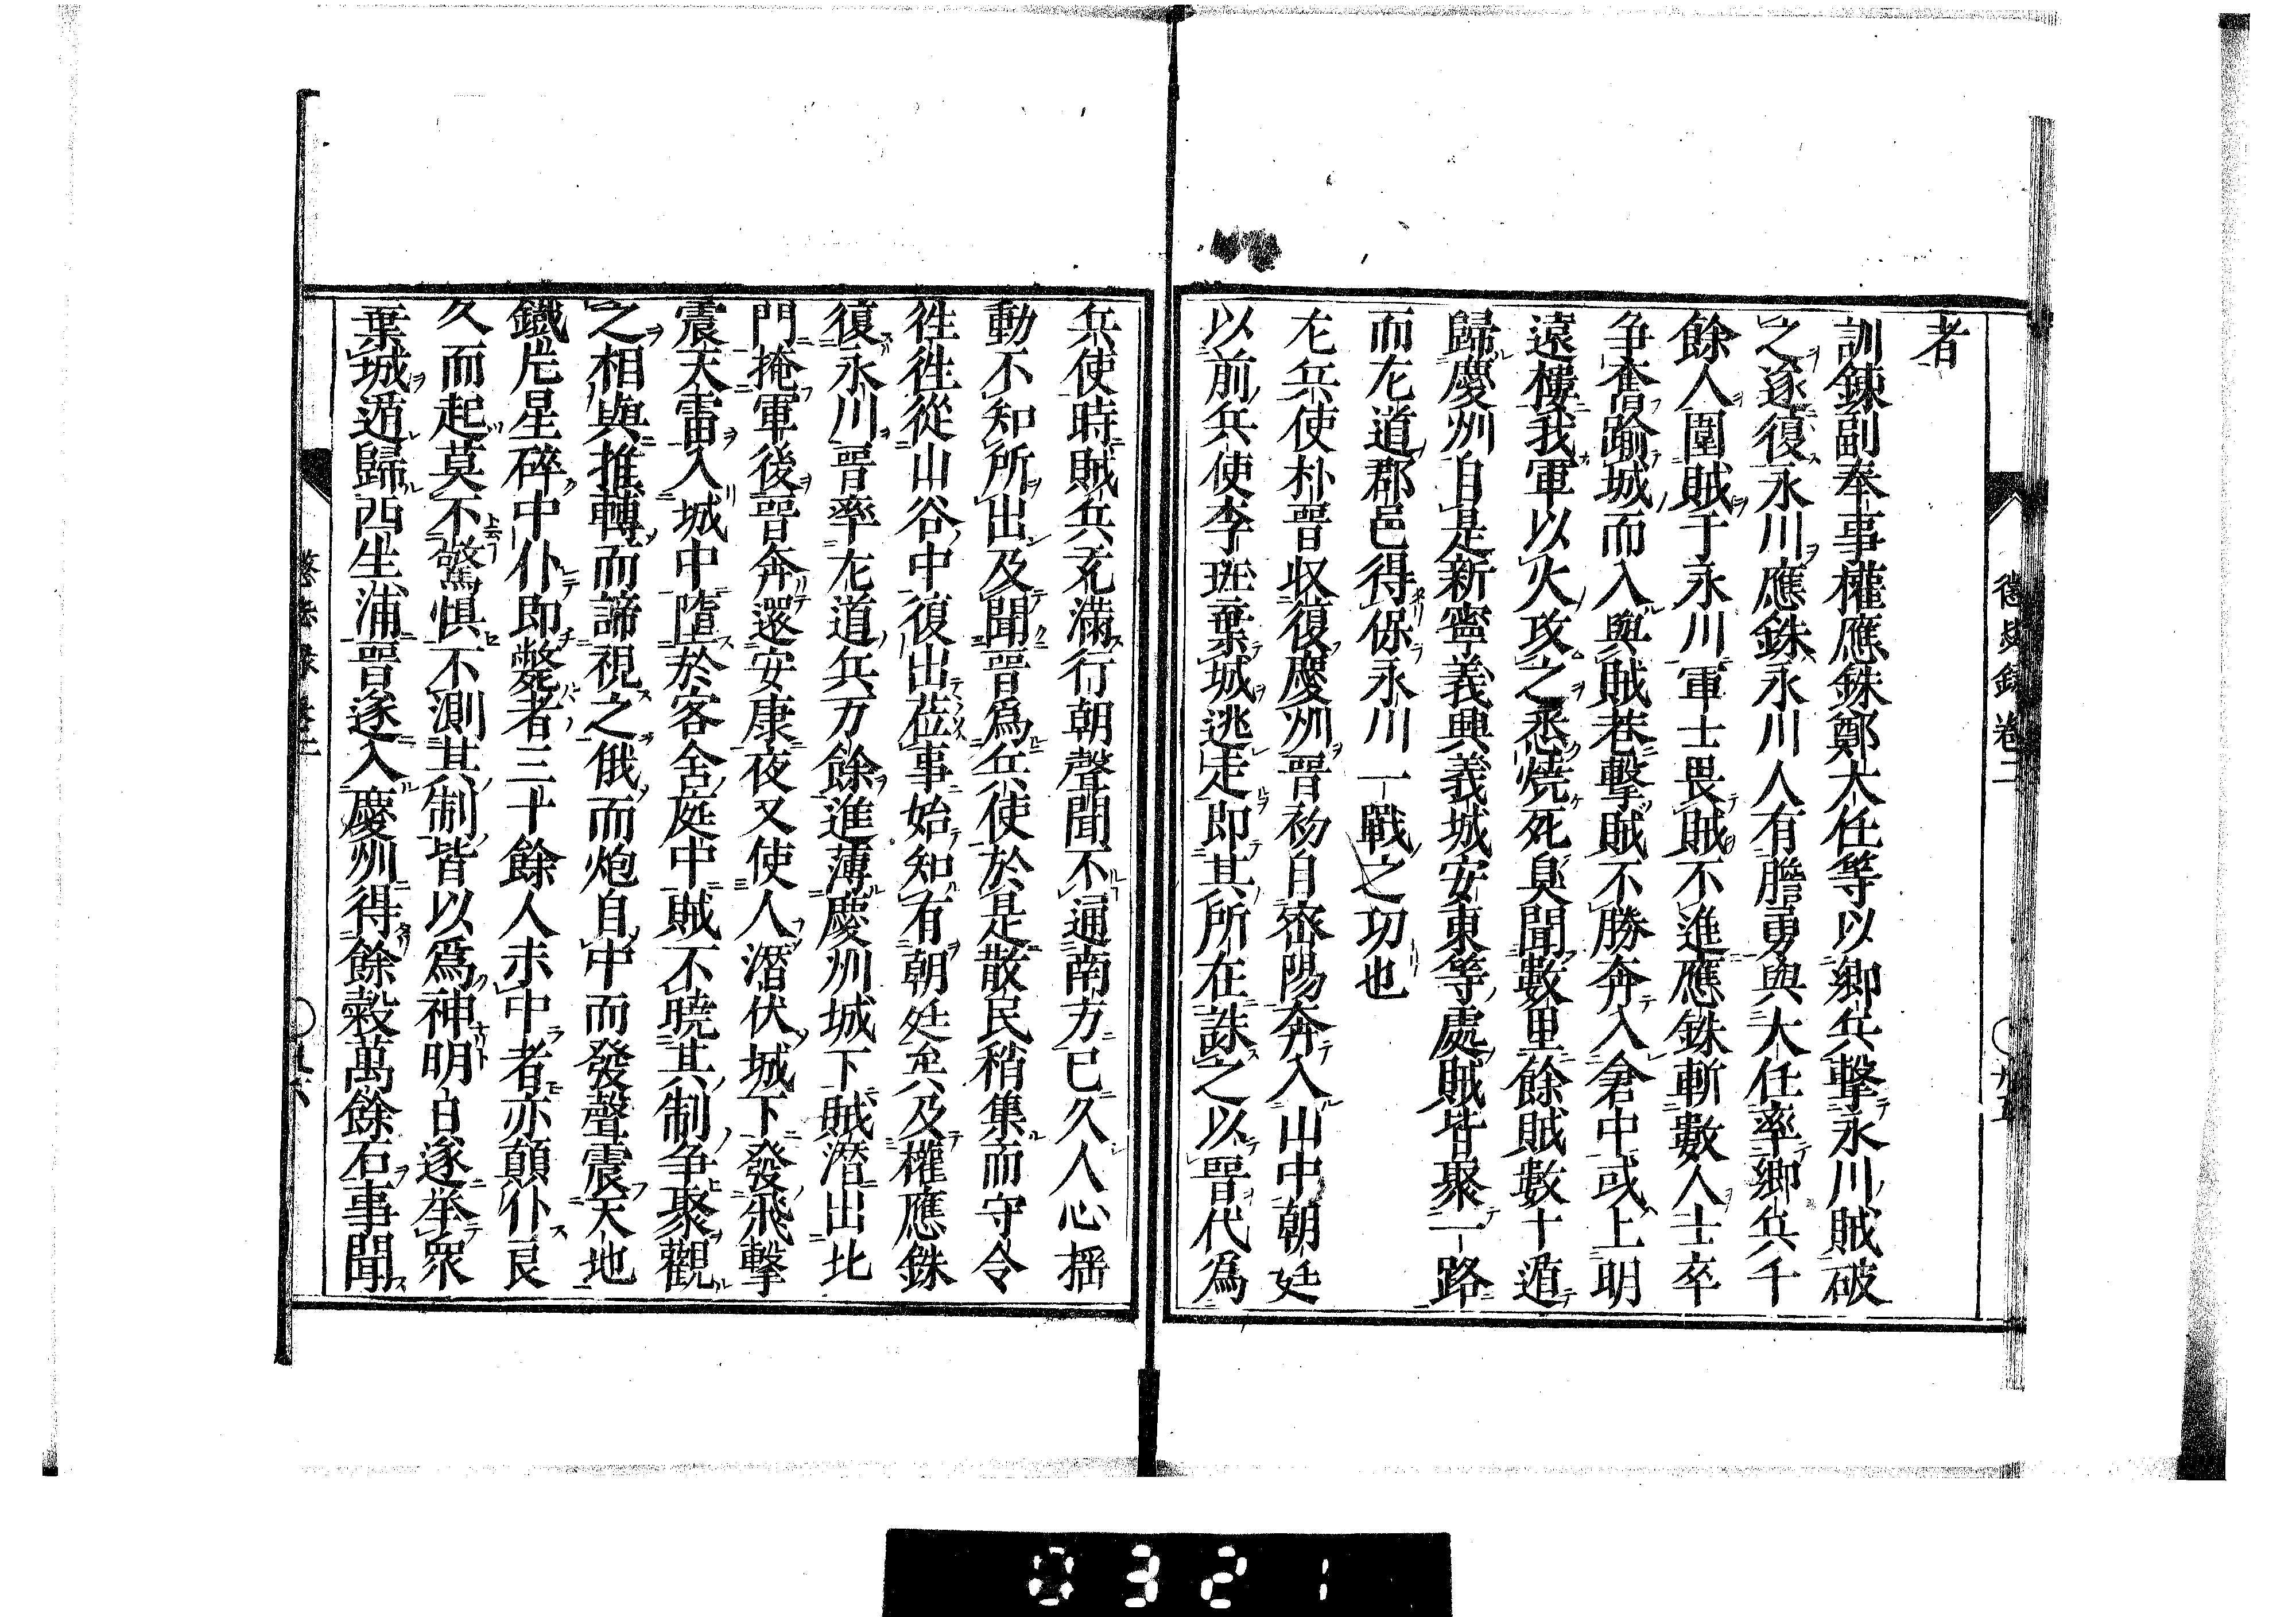 懲毖錄 卷二
者
訓鍊副奉事權應銖鄭大任等以鄉兵擊永川賊破
之遂復永川應銖永川人有膽勇與大任率鄉兵千
餘人圍賊于永川軍士畏賊不進應銖斬數人士卒
争奮踰城而入與賊巷擊賊不勝奔入倉中或上明
遠樓我軍以火攻之悉燒死臭聞數里餘賊數十遁
歸慶州自是新寧義興義城安東等處賊皆聚一路
而左道郡邑得保永川一戰之功也
左兵使朴晋収復慶州晋初自密陽奔入山中朝廷
以前兵使李珏棄城逃走即其所在誅之以晋代爲
兵使時賊兵充滿行朝聲聞不通南方已久人心摇
動不知所出及聞晋爲兵使於是散民稍集而守令
徃徃從山谷中復出莅事始知有朝廷矣及權應銖
復永川晋率左道兵万餘進薄慶州城下賊潜出北
門掩軍後晋奔還安康夜又使人潛伏城下發飛擊
震天雷入城中墮於客舍庭中賊不曉其制争聚觀
之相與推轉而諦視之俄而炮自中而發聲震天地
鐵片星碎中仆即斃者三十餘人未中者亦顛仆良
久而起莫不驚惧不測其制皆以爲神明日遂举衆
棄城遁歸西生浦晋遂入慶州得餘穀萬餘石事聞
0321